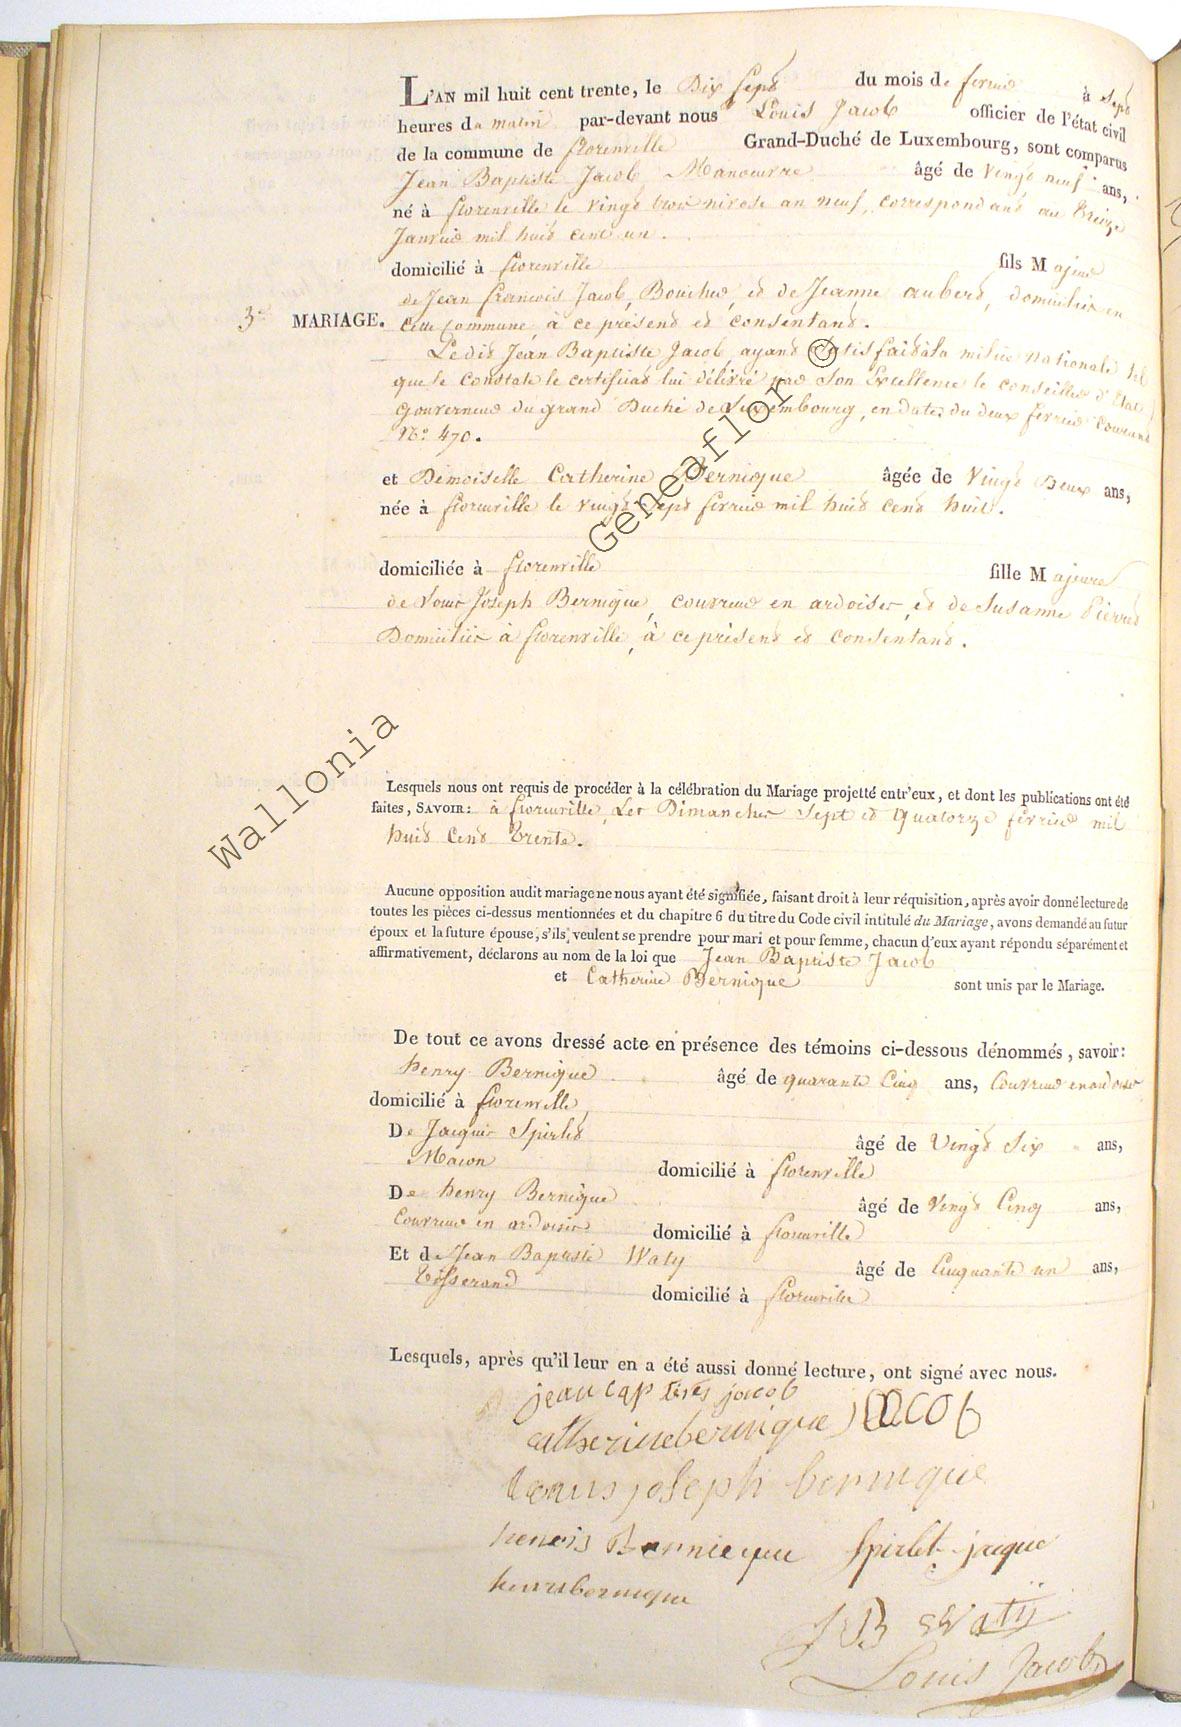 L'AN mil huit cent trente, le Dix Sept du mois de fevrier à sept
heures du matin par-devant nous Louis Jacob officier de l'état civil
de la commune de florenville Grand-Duché de Luxembourg, sont comparus
Jean Baptiste Jacob, Manoeuvre âgé de Vingt neuf ans,
né à florenville le vingt trois nivose an neuf, correspondant au treize
Janvier mil huit cent un.
domicilié à florenville fils Majeur
de Jean françois Jacob, Boucher, et de Jeanne aubert, domiciliés en
3e MARIAGE. cette commune, à ce présent et consentant.
Ledit Jean Baptiste Jacob ayant satisfait à la milice nationale tel
que le constate le certificat lui délivré par Son Excellence le conseiller d'Etat
Gouverneur du grand Duché de Luxembourg, en date du deux fevrier courant
No. 470.
et Demoiselle Catherine Bernique âgée de Vingt Deux ans,
née à florenville le vingt sept fevrier mil huit cent huit.
domiciliée à florenville fille Majeure
de Louis Joseph Bernique, couvreur en ardoises, et de Susanne Pierret
Domiciliés à florenville, à ce présent et consentant.
Lesquels nous ont requis de procéder à la célébration du Mariage projetté entr'eux, et dont les publications ont été
faites, SAVOIR: à florenville, Les Dimanches Sept et Quatorze fevrier mil
huit Cent Trente.
Aucune opposition audit mariage ne nous ayant été signifiée, faisant droit à leur réquisition, après avoir donné lecture de
toutes les pièces ci-dessus mentionnées et du chapitre 6 du titre du Code civil intitulé du Mariage, avons demandé au futur
époux et la future épouse, s'ils veulent se prendre pour mari et pour femme, chacun d'eux ayant répondu séparément et
affirmativement, déclarons au nom de la loi que Jean Baptiste Jacob
et Catherine Bernique sont unis par le Mariage.
De tout ce avons dressé acte en présence des témoins ci-dessous dénommés, savoir:
henry Bernique âgé de quarante Cinq ans, Couvreur en ardoises
domicilié à florenville,
De Jacques Spirlet âgé de Vingt Six ans,
Macon domicilié à florenville
De henry Bernique âgé de Vingt Cinq ans,
Couvreur en ardoises domicilié à florenville
Et de Jean Baptiste Waty âgé de Cinquante un ans,
Tisserand domicilié à florenville
Lesquels, après qu'il leur en a été aussi donné lecture, ont signé avec nous.
jean baptiste jacob
catherine bernique jacob
louis joseph bernique
henris Bernieque Spirlet jaque
henris bernique
J B Watÿ
Louis Jacob
Wallonia Geneaflor ©